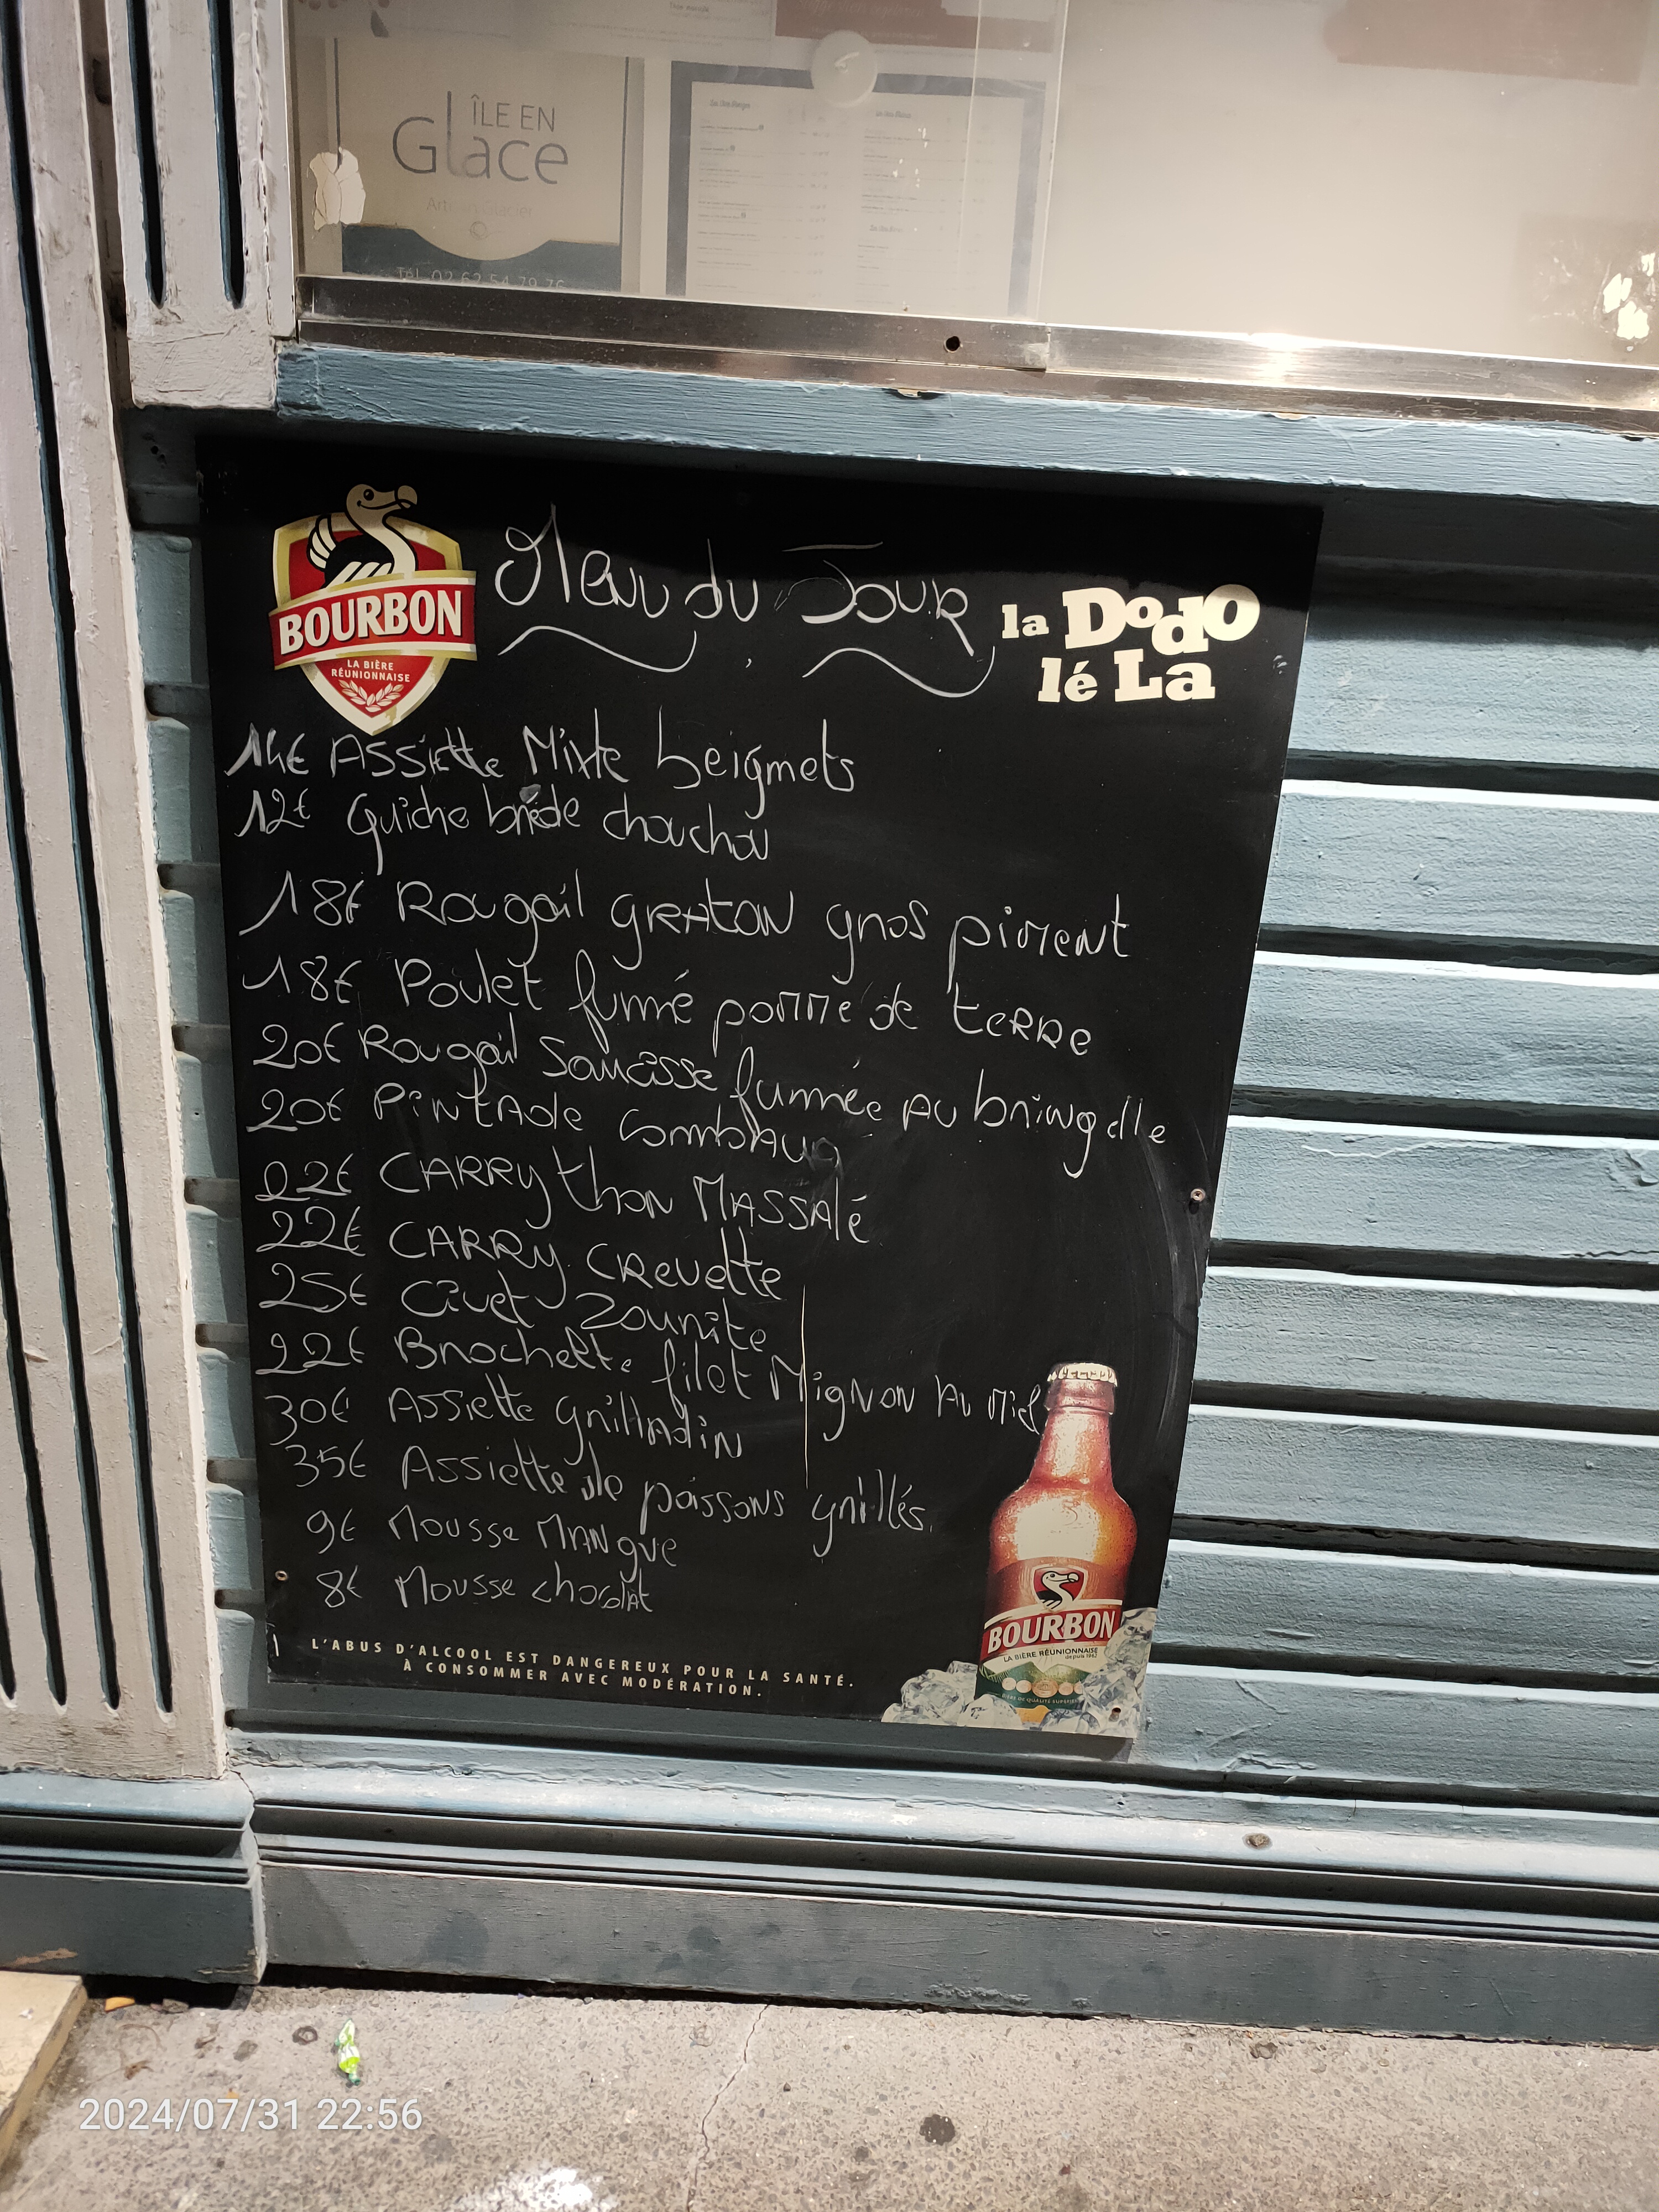 ÎLE EN
Glace
Artisan Glacier
Tél. 02 62 54 79 76
BOURBON
LA BIÈRE
RÉUNIONNAISE
Menu du Jour
la Dodo
lé La
14€ Assiette Mixte beignets
12€ Quiche brède chouchou
18€ Rougail GRATON gros piment
18€ Poulet fumé pomme de terre
20€ Rougail Saucisse fumée au bringelle
20€ Pintade Combava
22€ CARRY thon MASSALé
22€ CARRY CREvette
25€ Civet Zourite
22€ Brochette filet Mignon Au Miel
30€ Assiette grilladin
35€ Assiette de poissons grillés.
9€ Mousse MANgue
8€ Mousse chocolat
BOURBON
LA BIÈRE RÉUNIONNAISE
depuis 1962
L'ABUS D'ALCOOL EST DANGEREUX POUR LA SANTÉ.
À CONSOMMER AVEC MODÉRATION.
2024/07/31 22:56